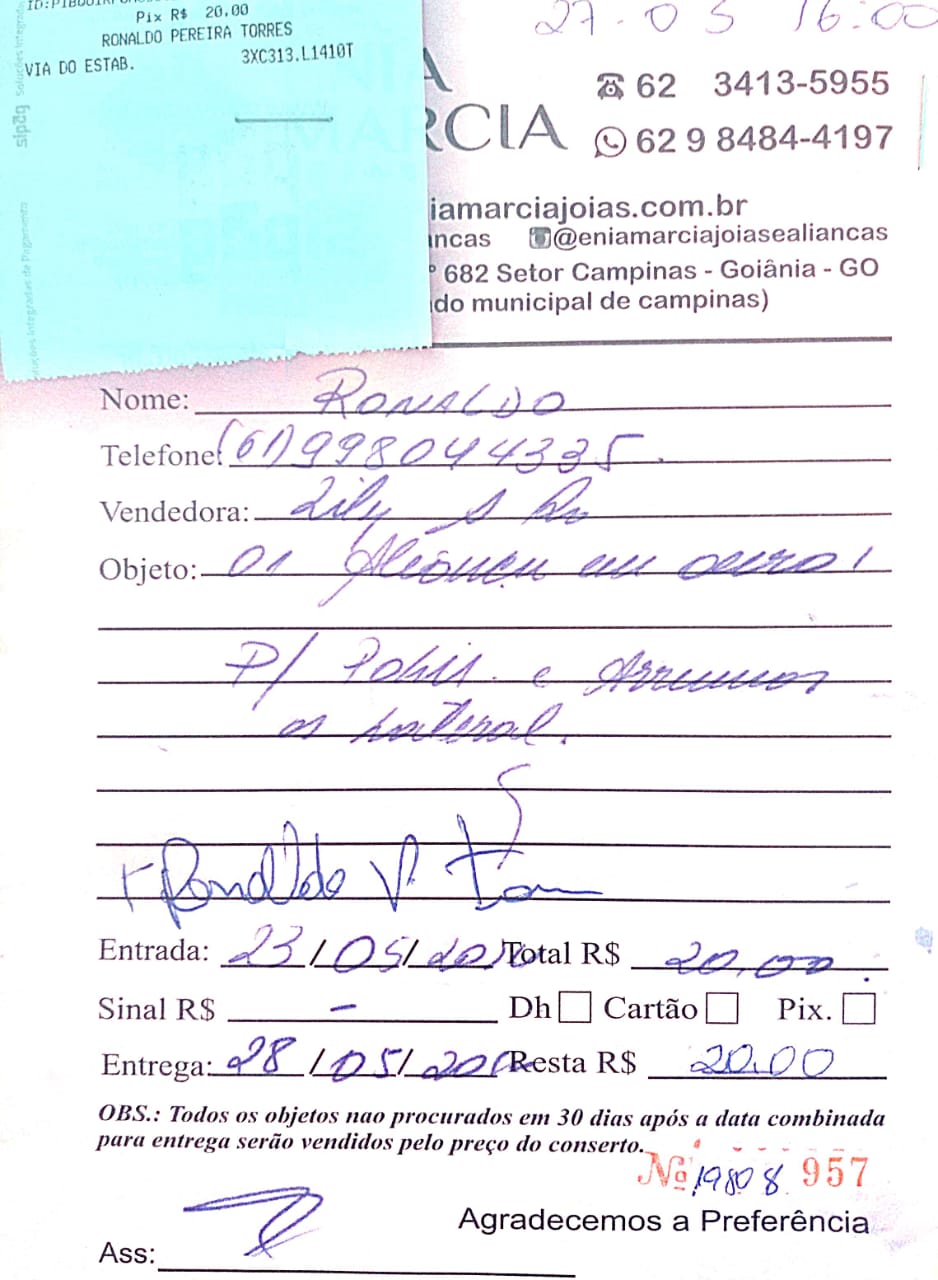 Pix R$ 20,00
RONALDO PEREIRA TORRES
VIA DO ESTAB. 3XC313.L1410T
sipag Soluções Integradas de Pagamento
27-05 16:00
MARCIA
62 3413-5955
62 9 8484-4197
iamarciajoias.com.br
ncas @eniamarciajoiasealiancas
682 Setor Campinas - Goiânia - GO
do municipal de campinas)
Nome: RONALDO
Telefone: (61) 998044335
Vendedora: Lily
Objeto: 01 Aliança em ouro
P/ Polir e Arrumar
as Lateral.
Ronaldo P.
Entrada: 23/05/20 Total R$ 20,00
Sinal R$ - Dh Cartão Pix.
Entrega: 28/05/20 Resta R$ 20,00
OBS.: Todos os objetos nao procurados em 30 dias após a data combinada
para entrega serão vendidos pelo preço do conserto.
Nº 19808 957
Agradecemos a Preferência
Ass: